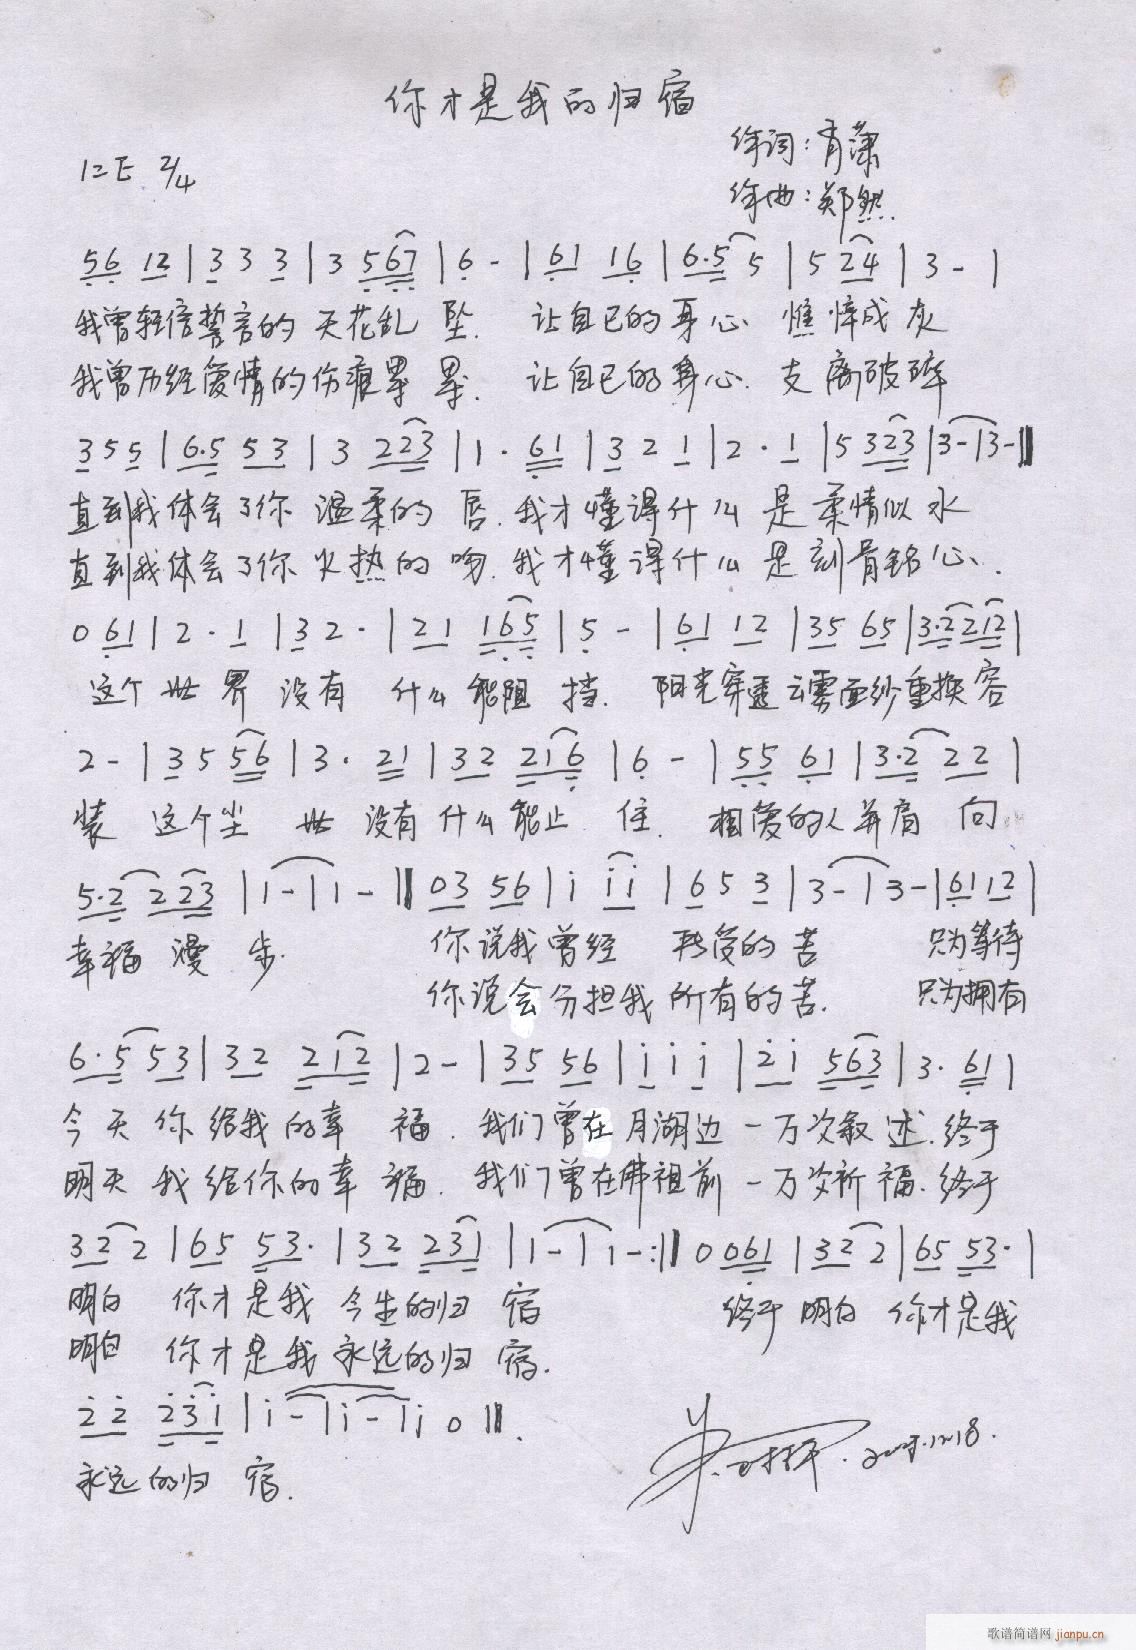 你才是我的归宿
作词：肖潇
1=E 2/4
作曲：郑然
56 12 | 3 3 3 | 3 567 | 6 - | 61 16 | 6.5 5 | 5 24 | 3 - |
我曾轻信誓言的 天花乱 坠. 让自己的身心 憔悴成灰
我曾历经爱情的伤痕累 累. 让自己的身心. 支离破碎
3 5 5 | 6.5 53 | 3 223 | 1 · 61 | 3 2 1 | 2 · 1 | 5 323 | 3 - | 3 - ‖
直到我体会了你 温柔的 唇. 我才懂得什么 是柔情似水
直到我体会了你火热的 吻. 我才懂得什么 是刻骨铭心.
0 61 | 2 · 1 | 3 2 · | 21 165 | 5 - | 61 12 | 35 65 | 3.2212 |
这个世界 没有 什么能阻 挡. 阳光穿透云雾面纱重换容
2 - | 3 5 56 | 3 · 21 | 32 216 | 6 - | 55 61 | 3.2 22 |
装 这个尘 世 没有什么能止 住. 相爱的人并肩 向
5.2 223 | 1 - | 1 - ‖ 03 56 | i i i | 6 5 3 | 3 - | 3 - | 61 12 |
幸福 漫 步. 你说我曾经 承受的苦 只为等待
你说会分担我所有的苦. 只为拥有
6.5 53 | 32 212 | 2 - | 35 56 | i i i | 2 i 563 | 3. 61 |
今天 你 给我的幸 福. 我们曾在月湖边 一万次叙 述. 终于
明天 我 给你的幸 福. 我们曾在佛祖前 一万次祈福. 终于
32 2 | 65 53. | 32 231 | 1 - | 1 - :‖ 0 061 | 32 2 | 65 53. |
明白 你才是我 今生的归 宿 终于 明白 你才是我
明白 你才是我永远的归 宿.
2 2 2 3 i | i - | i - | i 0 ‖.
永远的归 宿.
歌谱简谱网 jianpu.cn